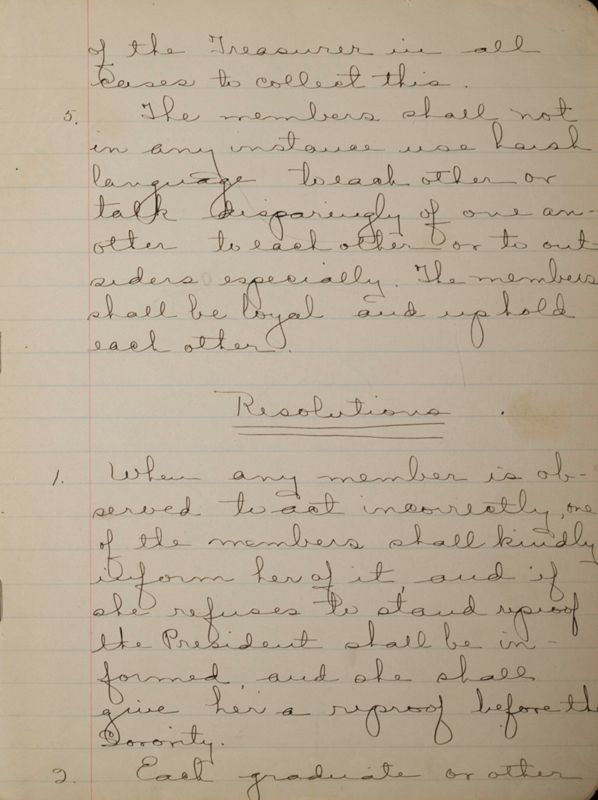 of the Treasurer in all
cases to collect this.
5. The members shall not
in any instance use harsh
language to each other or
talk disparingly of one an-
other to each other or to out
siders especially. The members
shall be loyal and uphold
each other.
Resolutions
1. When any member is ob-
served to act incorrectly, one
of the members shall kindly
inform her of it, and if
she refuses to stand reproof
the President shall be in-
formed, and she shall
give her a reproof before the
Sorority.
2. Each graduate or other